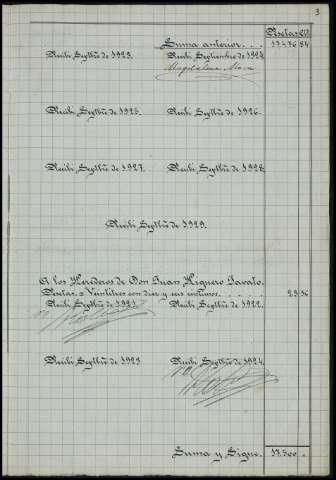 3
Pesetas Cts
Suma anterior . . . 17476 84
Recibí Sepbre de 1923. Recibí Septiembre de 1924
Magdalena
Recibí Sepbre de 1925. Recibí Sepbre de 1926.
Recibí Sepbre de 1927. Recibí Sepbre de 1928
Recibí Sepbre de 1929.
A los Herederos de Don Juan Higuero
Pesetas Veintitres con diez y seis centimos . . . . 23 16
Recibí Sepbre de 1921. Recibí Sepbre de 1922.
Recibí Sepbre de 1923 Recibí Sepbre de 1924.
Suma y Sigue. 17.500 "